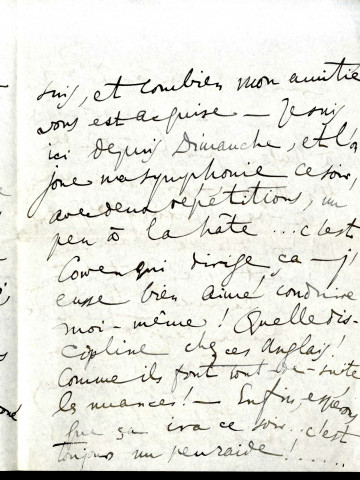 suis, et combien mon amitié
vous est acquise — Je suis
ici depuis Dimanche, et l'on
joue ma symphonie ce soir,
avec deux répétitions, un
peu à la hâte ... c'est
Cowen qui dirige ça — j'
eusse bien aimé conduire
moi-même ! Quelle dis-
cipline chez ces Anglais !
Comme ils font tout de-suite
les nuances ! — Enfin, espérons
que ça ira ce soir .. c'est
toujours un peu raide ! ......